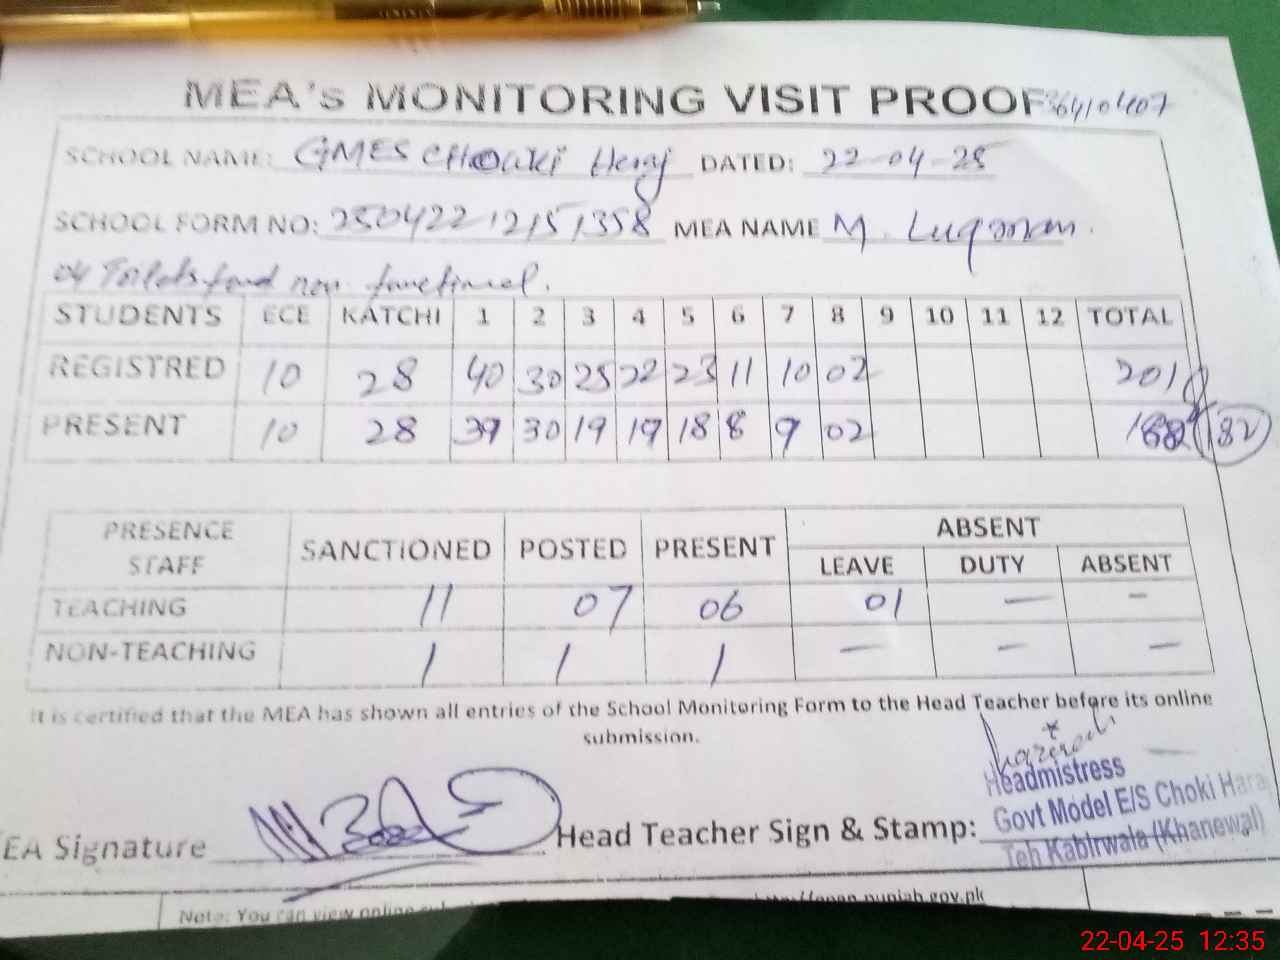 MEA's MONITORING VISIT PROOF 36410407
SCHOOL NAME: GMES CHOUKI Heraj DATED: 22-04-25
SCHOOL FORM NO: 25042212151358 MEA NAME M. Luqman.
04 Toilets found non functional.
STUDENTS ECE KATCHI 1 2 3 4 5 6 7 8 9 10 11 12 TOTAL
REGISTRED 10 28 40 30 25 22 23 11 10 02 201
PRESENT 10 28 39 30 19 19 18 8 9 02 182
PRESENCE STAFF SANCTIONED POSTED PRESENT ABSENT
LEAVE DUTY ABSENT
TEACHING 11 07 06 01 — -
NON-TEACHING 1 1 1 — — —
It is certified that the MEA has shown all entries of the School Monitoring Form to the Head Teacher before its online
submission.
Headmistress
Govt Model E/S Choki Hara
Teh Kabirwala (Khanewal)
EA Signature Head Teacher Sign & Stamp:
Note: You can view online
.punjab.gov.pk
22-04-25 12:35